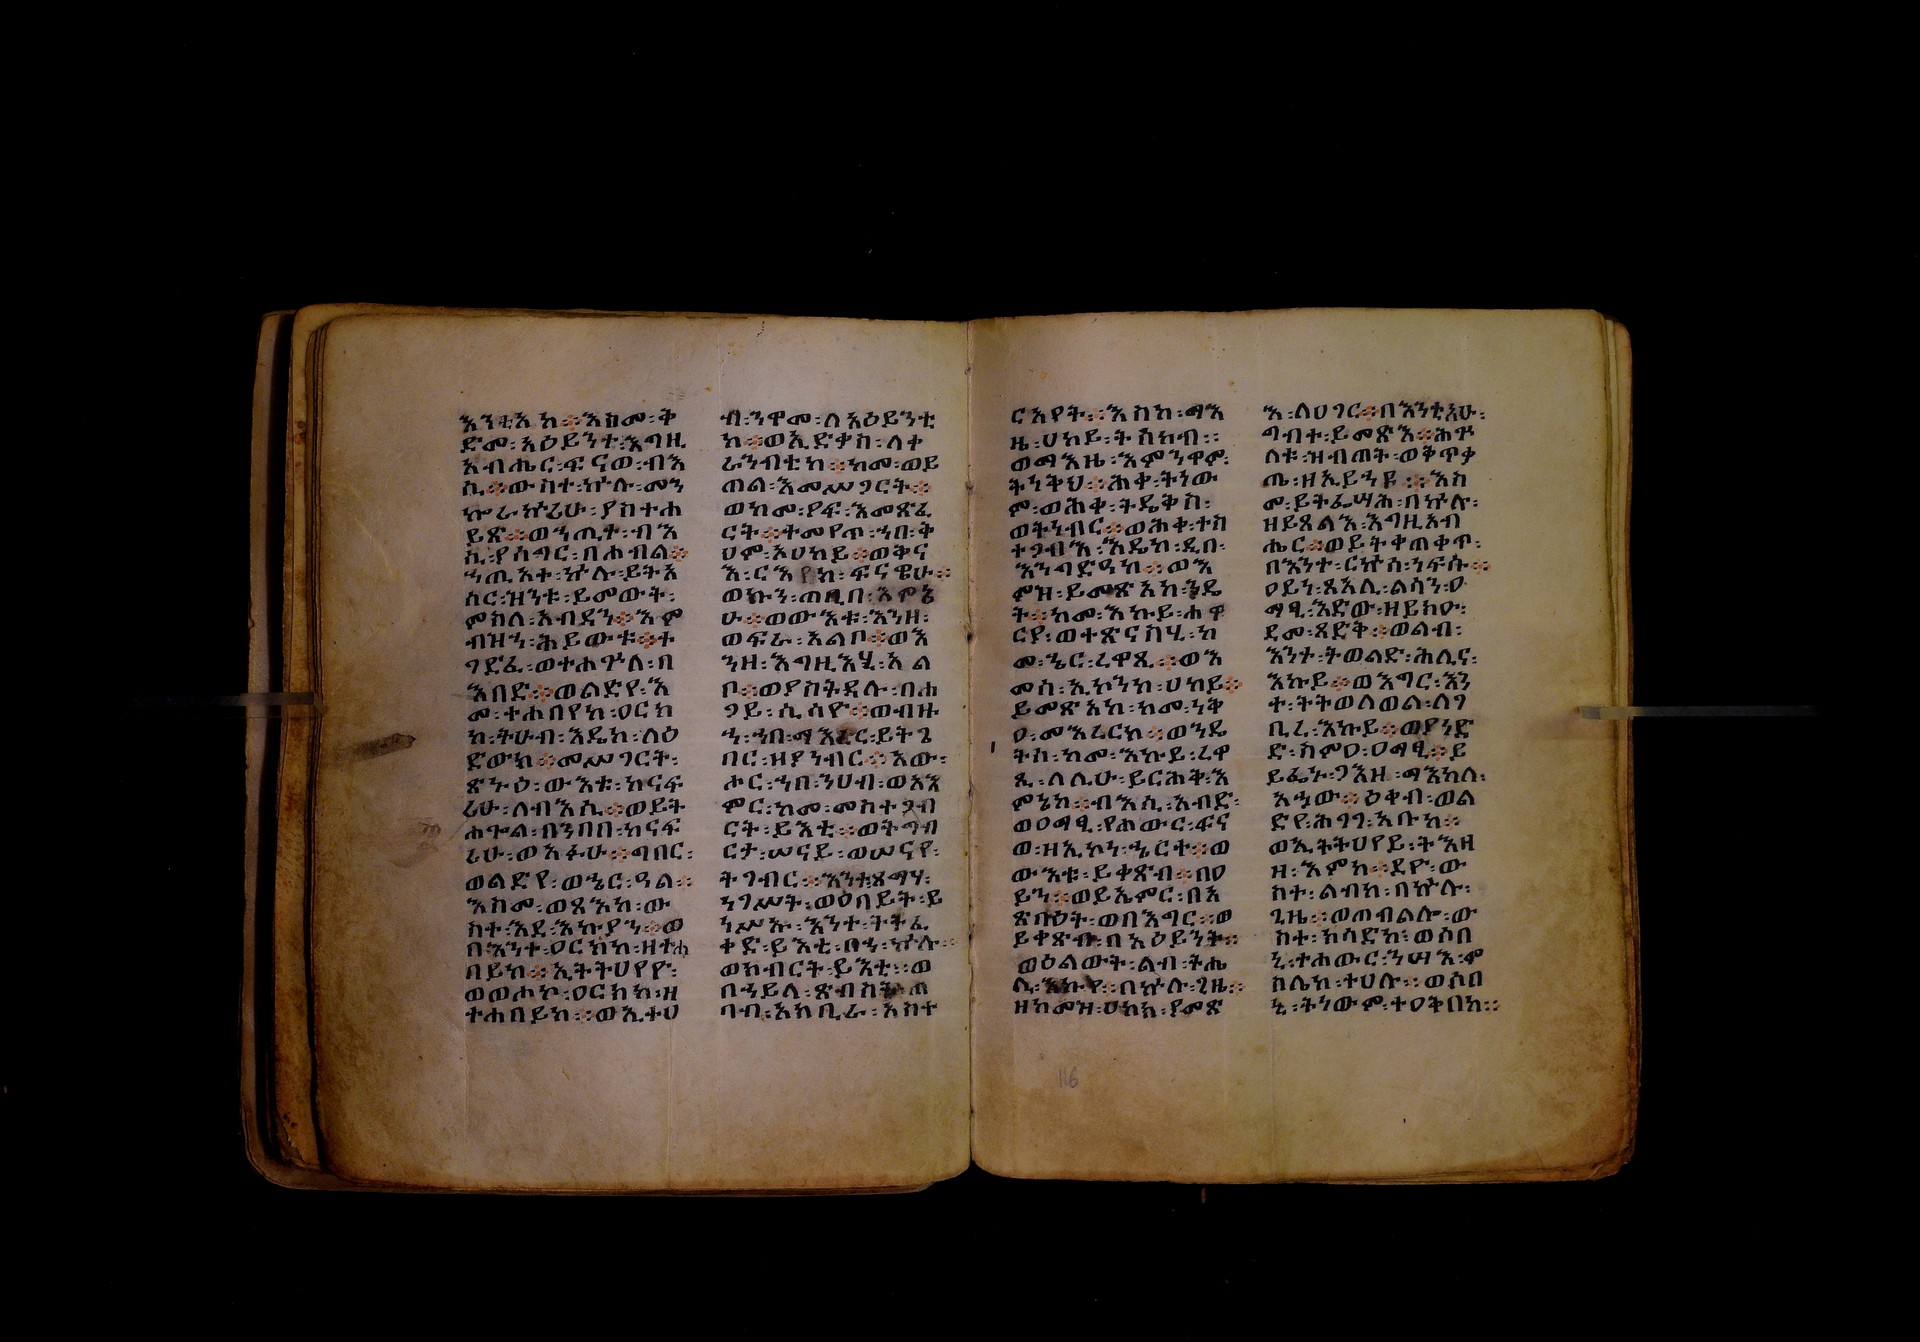 እንቲአከ፨እስመ፡ቅ
ድመ፡አዕይንተ፡እግዚ
አብሔር፡ፍናወ፡ብእ
ሲ፨ውስተ፡ኵሉ፡መን
ኰራኵሪሁ፡ያስተሐ
ይጽ፨ወኀጢት፡ብእ
ሲ፡ያሰግር፡በሐብል፨
ኀጢአት፡ኵሉ፡ይትአ
ሰር፡ዝንቱ፡ይመውት፡
ምስለ፡አብዳን፨እም
ብዝኀ፡ሕይወቱ፨ት
ገድፈ፡ወተሐጕለ፡በ
እበድ፨ወልድየ፡እ
መ፡ተሐበየከ፡ዐርክ
ከ፡ትሁብ፡እዴከ፡ለዕ
ድውከ፨መሥገርት፡
ጽኑዕ፡ውእቱ፡ከናፍ
ሪሁ፡ለብእሲ፨ወይት
ሐጐል፡በነበበ፡ከናፍ
ሪሁ፡ወአፉሁ፨ግበር፡
ወልድየ፡ወኄር፡ዓል፨
እስመ፡ወጻእከ፡ው
ስተ፡እደ፡እኩያን፨ወ
በእንተ፡ዐርክከ፡ዘተሐ
በይከ፨ኢትትሀየይ፡
ወወሖኮ፡ዐርክከ፡ዘ
ተሐበይከ፨ወኢተሀ
ብ፡ንዋመ፡ለአዕይንቲ
ከ፨ወኢድቃስ፡ለቀ
ራንብቲከ፨ከመ፡ወይ
ጠል፡እመሥገርት፨
ወከመ፡ዖፍ፡እመጽፈ
ርት፨ተመየጥ፡ኀበ፡ቅ
ህም፡ኦሀካይ፨ወቅና
እ፡ርእዮከ፡ፍናዊሁ፨
ወኩን፡ጠቢበ፡እምኔ
ሁ፨ወውእቱ፡እንዘ፡
ወፍራ፡አልቦ፨ወእ
ንዘ፡እግዚእሂ፡አል
ቦ፨ወያስትዳሉ፡በሐ
ጋይ፡ሲሳዮ፨ወብዙ
ኀ፡ኀበ፡ማእረር፡ይትጌ
በር፡ዘያነብር፨አው፡
ሖር፡ኀበ፡ንህብ፡ወአእ
ምር፡ከመ፡መስተገብ
ርት፡ይእቲ፨ወትግብ
ርታ፡ሠናይ፡ወሠናየ፡
ትገብር፨እንተ፡ጻማሃ፡
ነገሥት፡ወዐበይት፡ይ
ነሥኡ፡እንተ፡ትትፈ
ቀድ፡ይእቲ፡በኀ፡ኵሉ፨
ወክብርት፡ይእቲ፨ወ
በኀይለ፡ጽብስት፡ጠ
ባብ፡አክቢራ፡አስተ
ርአየት፨እስከ፡ማእ
ዜ፡ሀካይ፡ትሰክብ፨
ወማእዜ፡እምንዋም፡
ትነቅህ፨ሕቀ፡ትነው
ም፡ወሕቀ፡ትዴቅስ፡
ወትነብር፨ወሕቀ፡ተሐ
ተገብእ፡እዴከ፡ዲበ፡
እንግድዓከ፨ወእ
ምዝ፡ይመጽአከ፡ንዴ
ት፨ከመ፡እኩይ፡ሐዋ
ርያ፡ወተጽናስሂ፡ከ
መ፡ኄር፡ረዋጺ፨ወእ
መሰ፡ኢኮንከ፡ሀካይ፨
ይመጽአከ፡ከመ፡ነቅ
ዐ፡መእረርከ፨ወንዴ
ትከ፡ከመ፡እኩይ፡ረዋ
ጺ፡ለሊሁ፡ይርሕቅ፡እ
ምኔከ፨ብእሲ፡አብድ፡
ወዐማፂ፡የሐውር፡ፍና
ወ፡ዘኢኮነ፡ኄርተ፨ወ
ውእቱ፡ይቀጽብ፨በዐ
ይን፨ወይኤምር፡በአ
ጽባዕት፡ወበእግር፨ወ
ይቀጽብ፡በአዕይንት፨
ወዕልወት፡ልብ፡ትሔ
ሊ፡እኩየ፨በኵሉ፡ጊዜ፨
ዘከመዝ፡ሀከክ፡ያመጽ
እ፡ለሀገር፨በእንቲአሁ፡
ግብተ፡ይመጽእ፨ሕጕ
ለቱ፡ዝብጠት፡ወቅጥቃ
ጤ፡ዘኢይኃዩ፨እስ
መ፡ይትፌሣሕ፡በኵሉ፡
ዘይጸልእ፡እግዚአብ
ሔር፨ወይትቀጠቀጥ፡
በእንተ፡ርኵሰ፡ነፍሱ፨
ዐይነ፡ጸአሊ፡ልሳነ፡ዐ
ማፂ፡እደው፡ዘይክዑ፡
ደመ፡ጻድቅ፨ወልብ፡
እንተ፡ትወልድ፡ሕሊና፡
እኩይ፨ወእግር፡እን
ተ፡ትትወለወል፡ለገ
ቢረ፡እኩይ፨ወያነድ
ድ፡ስምዐ፡ዐማፂ፨ይ
ፌኑ፡ጋእዘ፡ማእከለ፡
አኀው፨ዕቀብ፡ወል
ድየ፡ሕገገ፡አቡከ፨
ወኢትትሀየይ፡ትእዛ
ዘ፡እምከ፨ደዮ፡ው
ስተ፡ልብከ፡በኵሉ፡
ጊዜ፨ወጠብልሎ፡ው
ስተ፡ክሳድከ፡ወሶበ
ኒ፡ተሐውር፡ንሣእ፡ም
ስሌከ፡ተሀሉ፨ወሶበ
ኒ፡ትነውም፡ተዐቅበከ፨
116